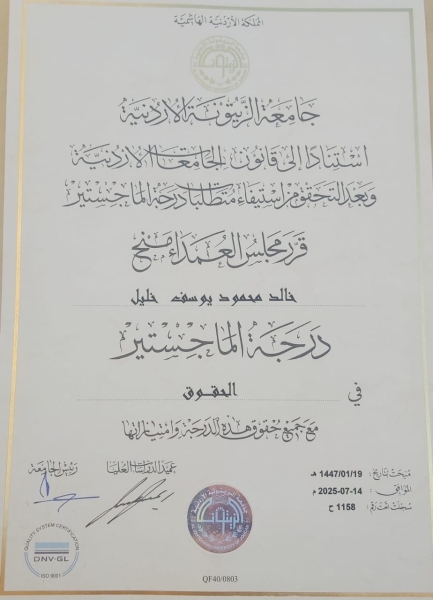 المملكة الأردنية الهاشمية
جامعة الزيتونة الأردنية
استنادا إلى قانون الجامعات الأردنية
وبعد التحقق من استيفاء متطلبات درجة الماجستير
قرر مجلس العمداء منح
خالد محمود يوسف خليل
درجة الماجستير
في الحقوق
مع جميع حقوق هذه الدرجة وامتيازاتها
رئيس الجامعة عميد الدراسات العليا
منحت بتاريخ: 1447/01/19 هـ
الموافق: 2025-07-14 م
سجلت تحت رقم: 1158 ح
QUALITY SYSTEM CERTIFICATION
DNV·GL
ISO 9001
QF40/0803